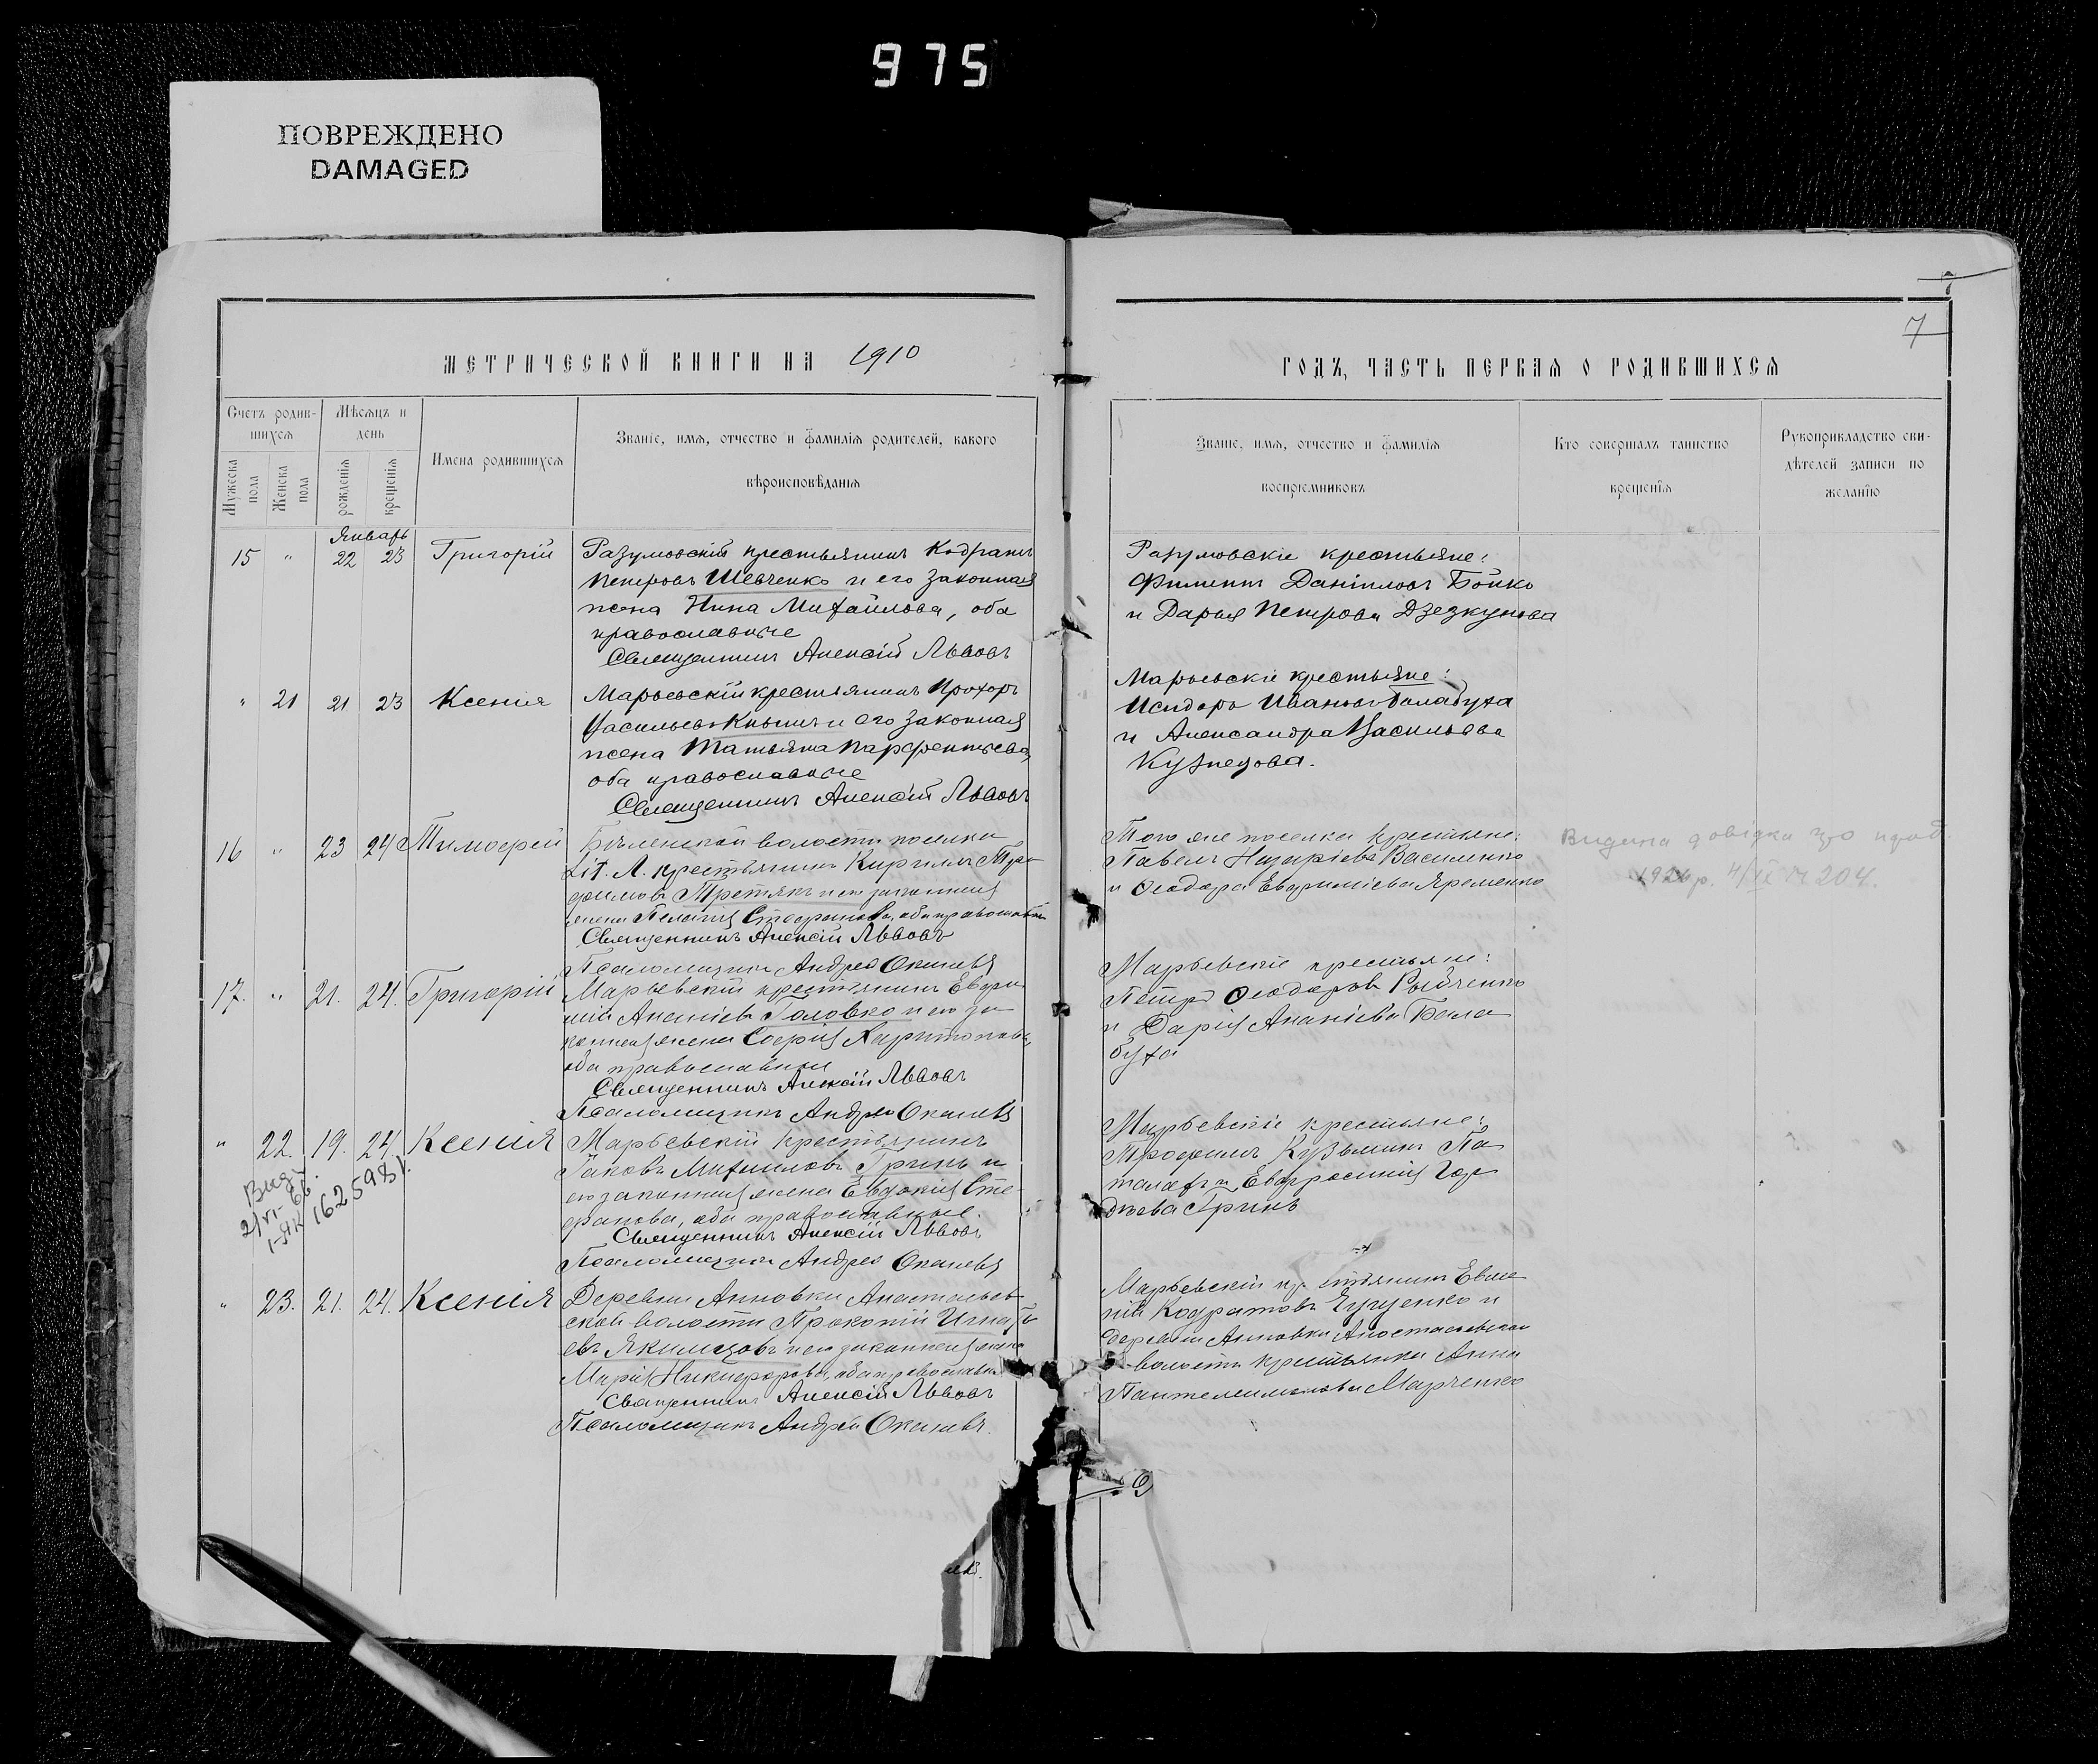 975
ПОВРЕЖДЕНО
DAMAGED
7
МЕТРИЧЕСКОЙ КНИГИ НА 1910
Счетъ родив-
шихся
Мѣсяцъ и
день
Мужеска
пола
Женска
пола
рожденія
крещенія
Имена родившихся
Званіе, имя, отчество и фамилія родителей, какого
вѣроисповѣданія
Январь
15 " 22 23 Григорій
Разумовскій крестьянинъ Кодратъ
Петровъ Шевченко и его законная
жена Нина Михайлова, оба
православные
Священникъ Алексій Львовъ
" 21 21 23 Ксенія
Марьевскій крестьянинъ Прохоръ
Васильевъ и его законная
жена Татьяна Парфентьева,
оба православные
Священникъ Алексій Львовъ
16 " 23 24 Тимофей
Бѣленской волости поселка
Lit. А. крестьянинъ Кирилъ Тро
фимовъ Третякъ и его законная
жена Пелагія Стефанова, оба православные
Священникъ Алексій Львовъ
Псаломщикъ Андрей
17. " 21. 24. Григорій
Марьевскій крестьянинъ Евфи
мій Ананіевъ Головко и его за
конная жена Софія Харитонова,
оба православные
Священникъ Алексій Львовъ
Псаломщикъ Андрей
" 22. 19. 24. Ксенія
Марьевскій крестьянинъ
Яковъ Михаиловъ Гринь и
его законная жена Евдокія Сте
фанова, оба православные.
Священникъ Алексій Львовъ
Псаломщикъ Андрей
Вид.
2/VI-66.
I-ЯК 162598
" 23. 21. 24. Ксенія
Деревни Анновки Анастасьев
ской волости Прокопій Игнать
евъ Якимцовъ и его законная жена
Марія Никифорова, оба православные
Священникъ Алексій Львовъ
Псаломщикъ Андрей
7
ГОДЪ, ЧАСТЬ ПЕРВАЯ О РОДИВШИХСЯ
Званіе, имя, отчество и фамилія
воспріемниковъ
Кто совершалъ таинство
крещенія
Рукоприкладство сви-
дѣтелей записи по
желанію
Разумовскіе крестьяне:
Филиппъ Даніиловъ Бойко
и Дарья Петрова Дзезкунова
Марьевскіе крестьяне:
Исидоръ Ивановъ Балабуха
и Александра Васильева
Кузнецова.
Того же поселка крестьяне:
Павелъ Назаріевъ Василенко
и Ѳеодора Евфиміева Яременко
Видана довідка
1926 р. 4/IX № 204.
Марьевскіе крестьяне:
Петръ Ѳеодоровъ Рыбченко
и Дарія Ананіева Бала
буха
Марьевскіе крестьяне:
Трофимъ Кузьминъ Па
талахъ и Евфросинія Гор
дѣева Гринь
Марьевскій крестьянинъ Евге
ній Кодратовъ и
деревни Анновки Анастасьевской
волости крестьянка Анна
Пантелеимонова Марченко